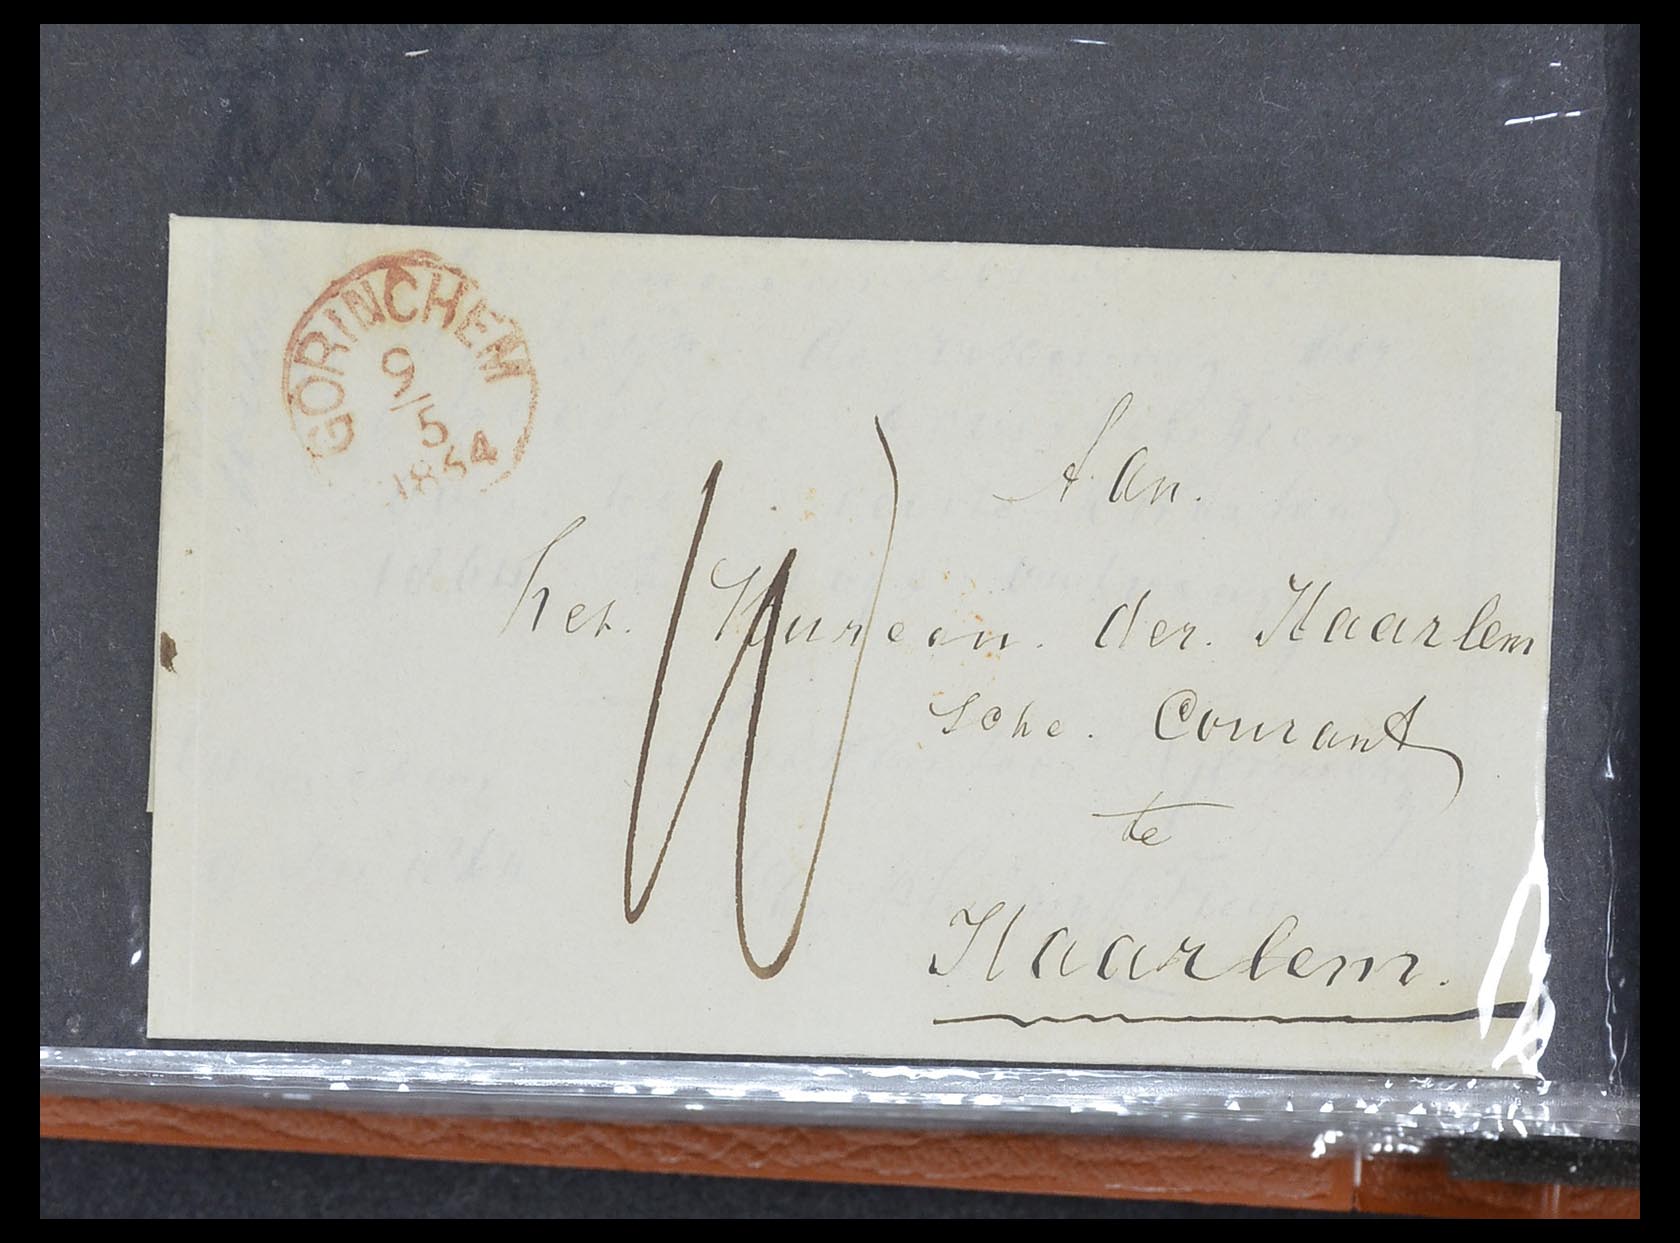 GORINCHEM
9/5
1854
Aan.
het. Bureau. der. Haarlem
sche. Courant
te
Haarlem.